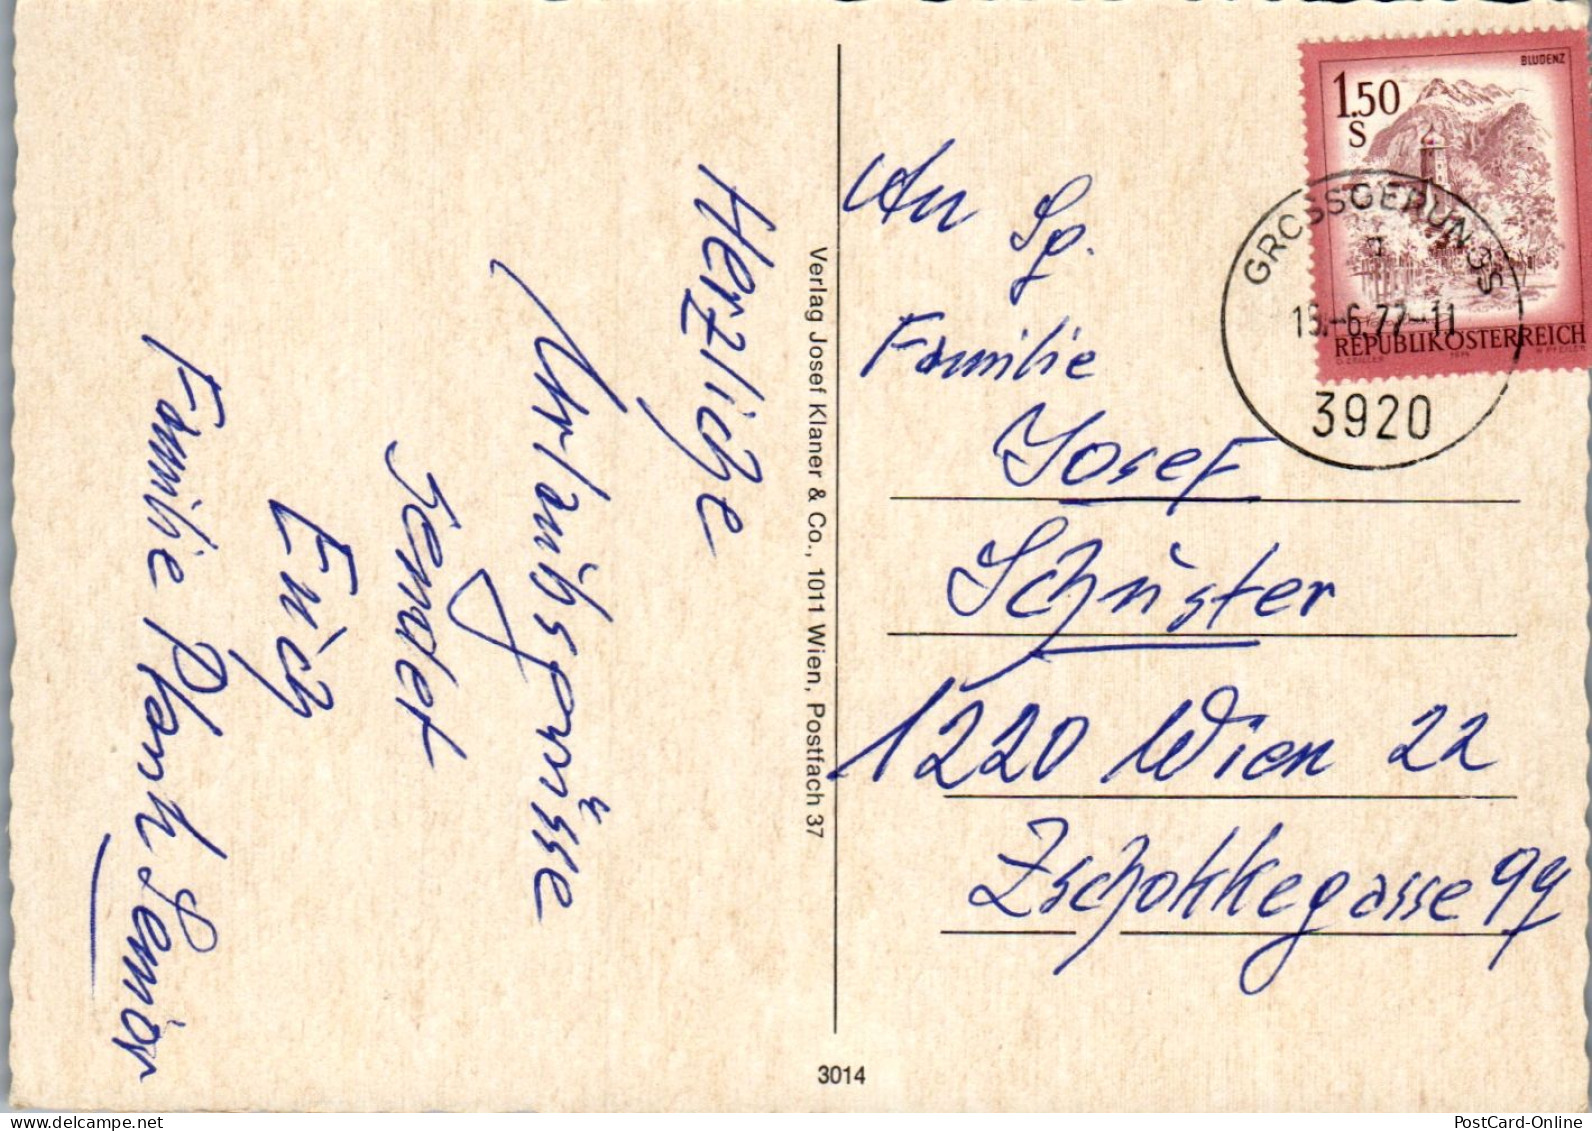 Herzliche
Urlaubsgrüsse
sendet
Euch
Familie Plank Senior
Verlag Josef Klaner & Co., 1011 Wien, Postfach 37
3014
BLUDENZ
1.50
S
REPUBLIK ÖSTERREICH
GROSSGERUNGS
6.77-11
3920
An Sg.
Familie
Josef
Schuster
1220 Wien 22
Zschokkegasse 99
PostCard-Online